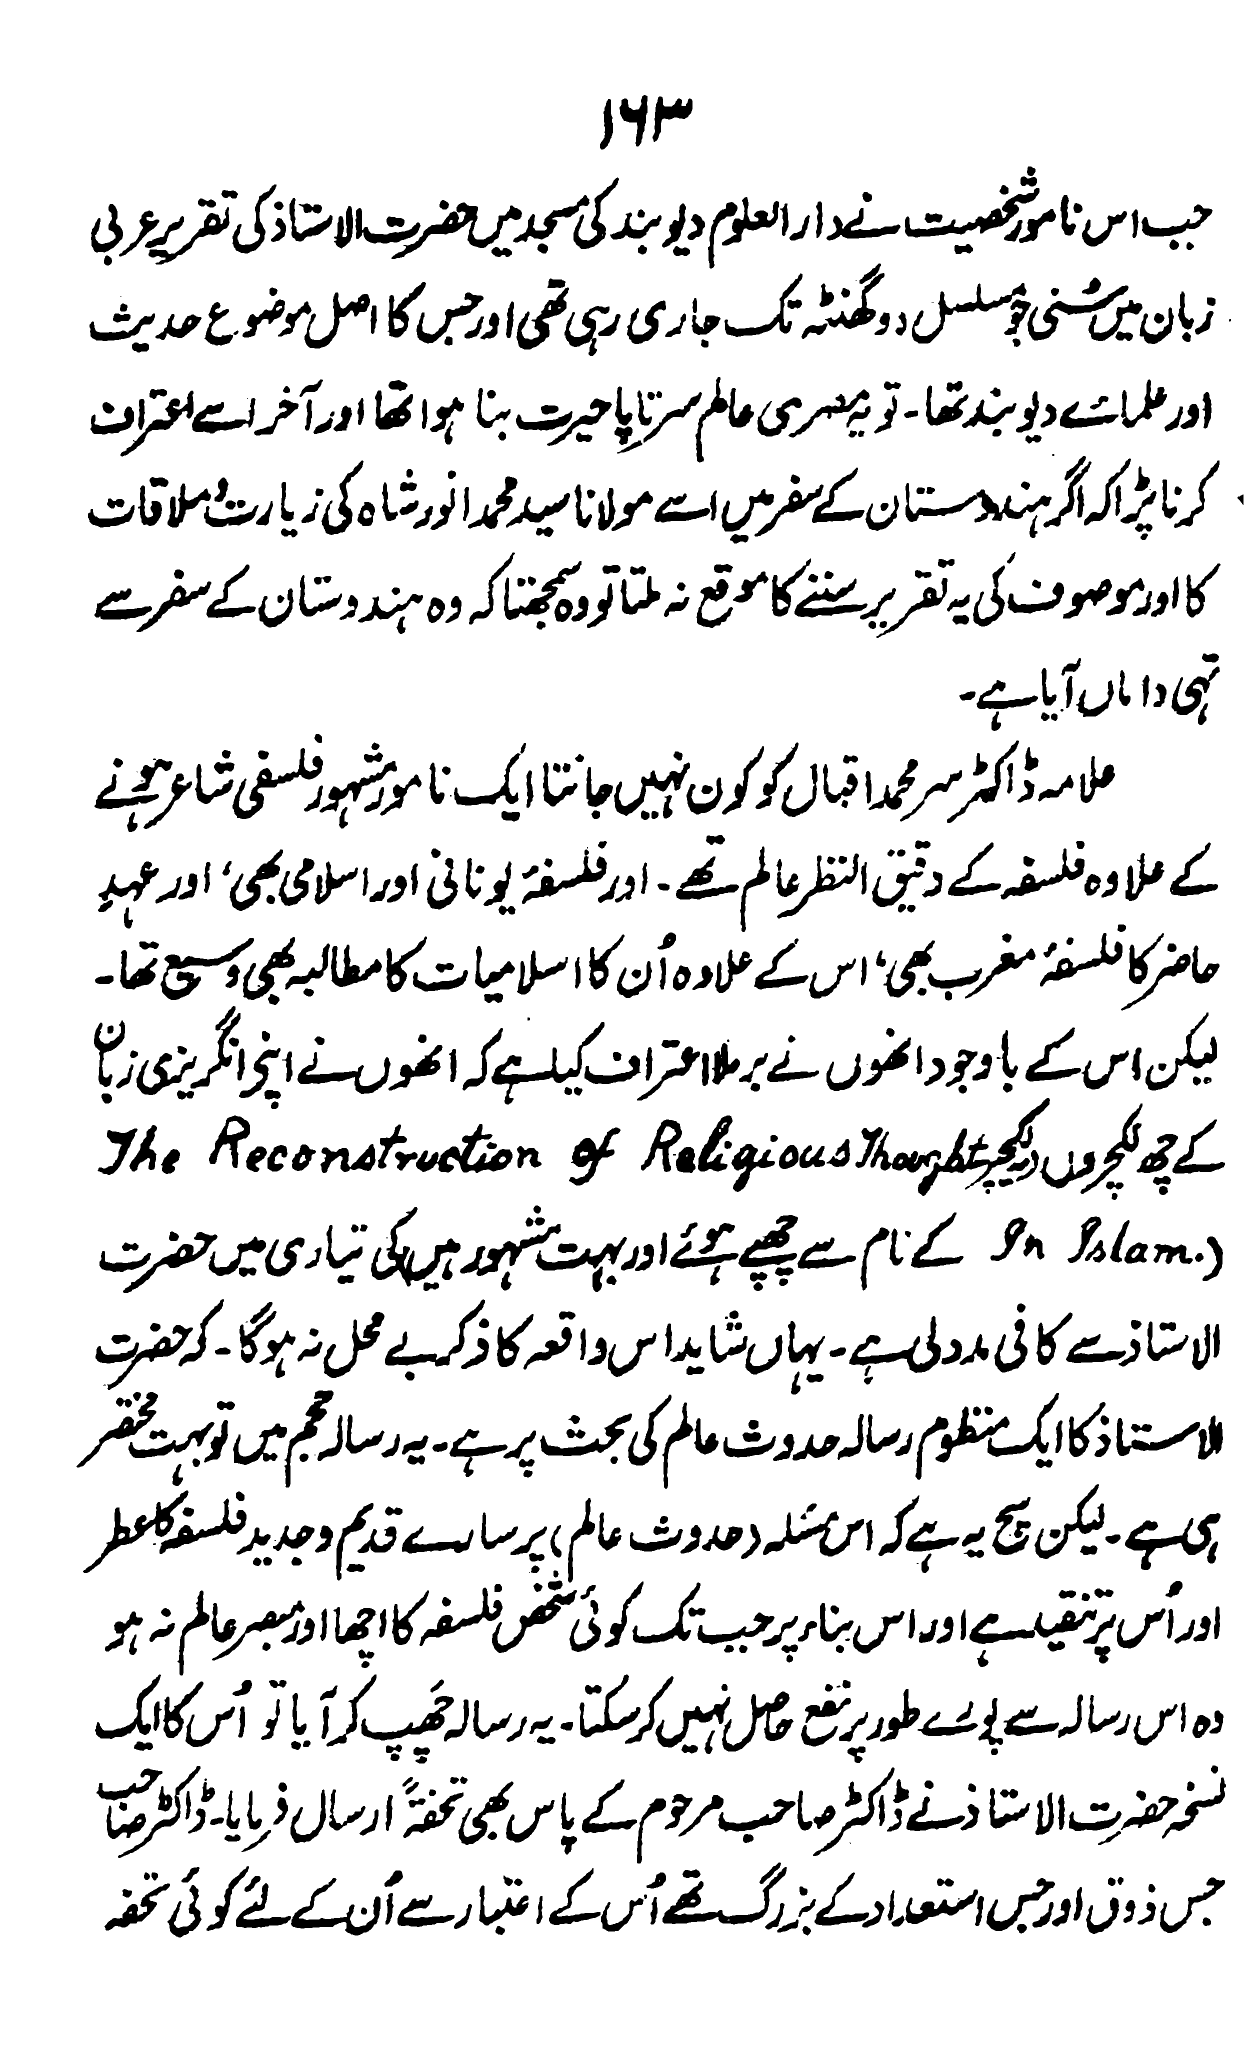 ۱۶۳
جب اس نامور شخصیت نے دارالعلوم دیوبند کی مسجد میں حضرت الاستاذ کی تقریر عربی
زبان میں سُنی جو مسلسل دو گھنٹہ تک جاری رہی تھی اور جس کا اصل موضوع حدیث
اور علمائے دیوبند تھا۔ تو یہ مصری عالم سرتاپا حیرت بنا ہوا تھا اور آخر اسے اعتراف
کرنا پڑا کہ اگر ہندوستان کے سفر میں اسے مولانا سید محمد انور شاہ کی زیارت و ملاقات
کا اور موصوف کی یہ تقریر سننے کا موقع نہ ملتا تو وہ سمجھتا کہ وہ ہندوستان کے سفر سے
تہی داماں آیا ہے۔
علامہ ڈاکٹر سر محمد اقبال کو کون نہیں جانتا ایک نامور مشہور فلسفی شاعر ہونے
کے علاوہ فلسفہ کے دقیق النظر عالم تھے۔ اور فلسفۂ یونانی اور اسلامی بھی، اور عہدِ
حاضر کا فلسفۂ مغرب بھی، اس کے علاوہ اُن کا اسلامیات کا مطالبہ بھی وسیع تھا۔
لیکن اس کے باوجود انھوں نے برملا اعتراف کیا ہے کہ انھوں نے اپنی انگریزی زبان
کے چھ لکچروں (یہ لیکچر The Reconstruction of Religious Thought
In Islam.) کے نام سے چھپے ہوئے اور بہت مشہور ہیں) کی تیاری میں حضرت
الاستاذ سے کافی مدد لی ہے۔ یہاں شاید اس واقعہ کا ذکر بے محل نہ ہوگا۔ کہ حضرت
الاستاذ کا ایک منظوم رسالہ حدوث عالم کی بحث پر ہے۔ یہ رسالہ حجم میں تو بہت مختصر
ہی ہے۔ لیکن سچ یہ ہے کہ اس مسئلہ (حدوث عالم) پر سارے قدیم و جدید فلسفہ کا عطر
اور اُس پر تنقید ہے اور اس بناء پر جب تک کوئی شخص فلسفہ کا اچھا اور مبصر عالم نہ ہو
وہ اس رسالہ سے پورے طور پر نفع حاصل نہیں کر سکتا۔ یہ رسالہ چَھپ کر آیا تو اُس کا ایک
نسخہ حضرت الاستاذ نے ڈاکٹر صاحب مرحوم کے پاس بھی تحفۃً ارسال فرمایا۔ ڈاکٹر صاحب
جس ذوق اور جس استعداد کے بزرگ تھے اُس کے اعتبار سے اُن کے لئے کوئی تحفہ